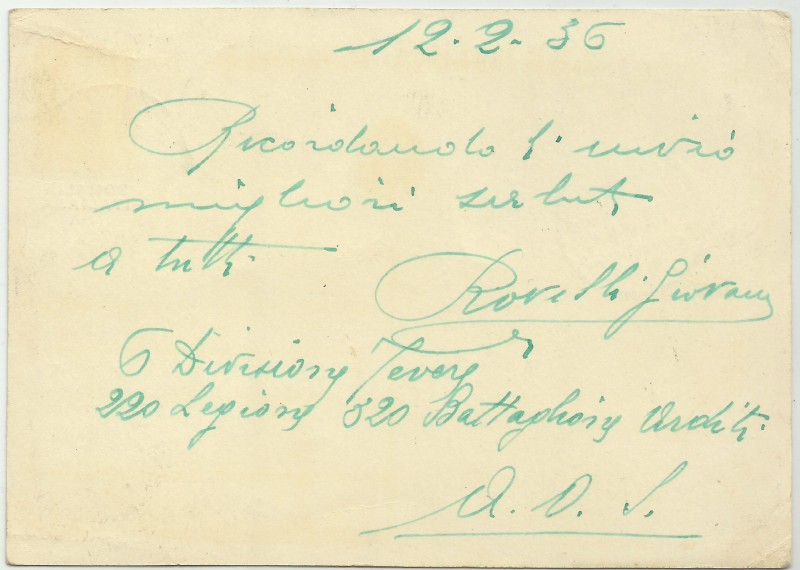 12.2.36
Ricordandoli invio
migliori saluti
a tutti
Rovelli Giovanni
6 Divisione Tevere
220 Legione 320 Battaglione Arditi
A. O. I.